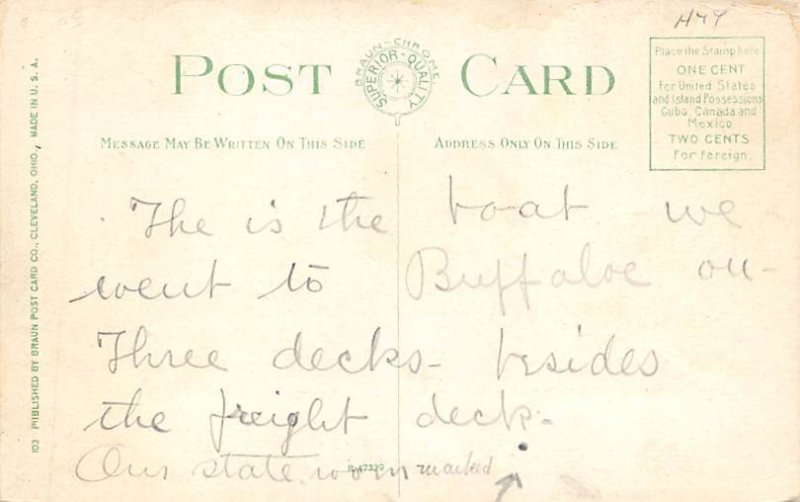 H44
POST CARD
BRAUN-CHROME
SUPERIOR-QUALITY
MESSAGE MAY BE WRITTEN ON THIS SIDE
ADDRESS ONLY ON THIS SIDE
Place the Stamp here
ONE CENT
For United States
and Island Possessions
Cuba, Canada and
Mexico
TWO CENTS
For Foreign
103 PUBLISHED BY BRAUN POST CARD CO., CLEVELAND, OHIO, MADE IN U. S. A.
The is the boat we
went to Buffaloe on-
Three decks- besides
the freight deck-
Our state room marked
R-47339